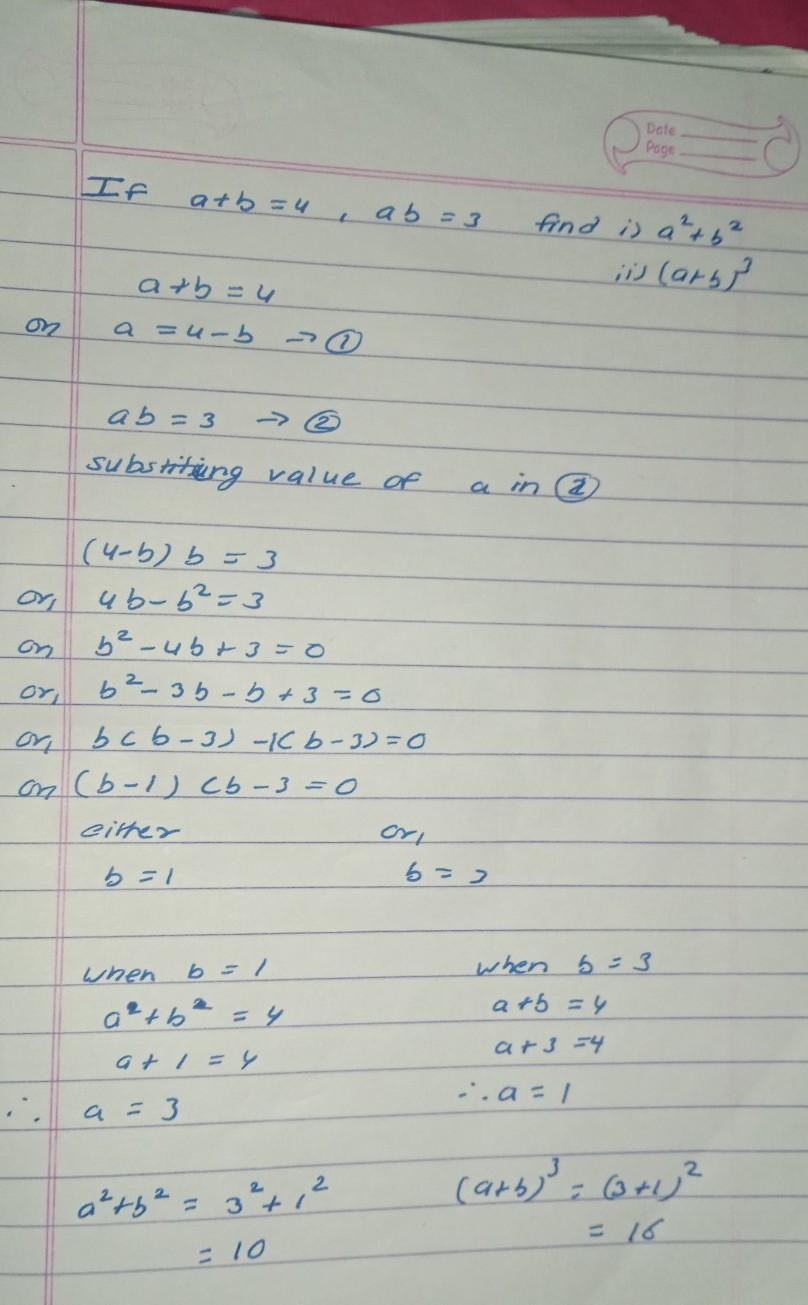 Date
Page
If a+b=4, ab=3 find i) a²+b²
ii) (a+b)³
a+b=4
or a=4-b → ①
ab=3 → ②
substituing value of a in ②
(4-b) b = 3
or, 4b-b²=3
or b²-4b+3=0
or, b²-3b-b+3=0
or, b(b-3)-1(b-3)=0
or (b-1) (b-3=0
either or,
b=1 b=3
when b=1 when b=3
a²+b²=4 a+b=4
a+1=4 a+3=4
∴ a=3 ∴ a=1
a²+b² = 3²+1² (a+b)³ = (3+1)²
=10 =16